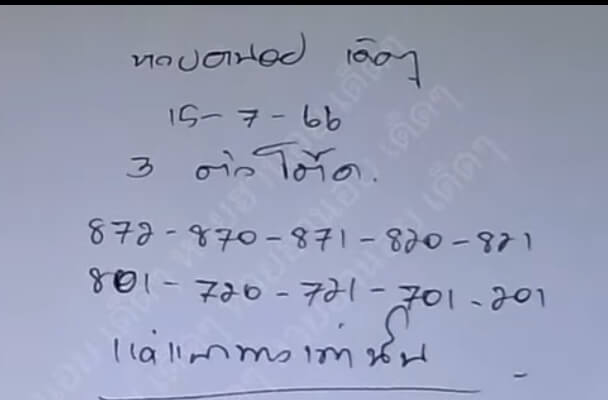 หวยซอง เด็ดๆ
15-7-66
3 ตัวโต๊ด.
872-870-871-820-821
801-720-721-701-201
แค่แนวทางเท่านั้น